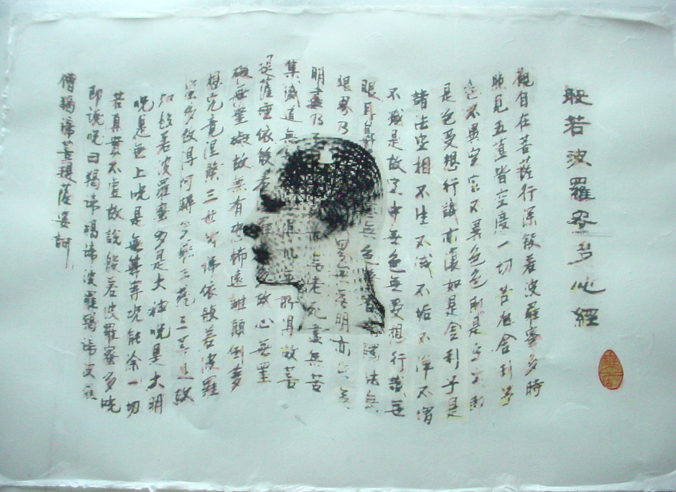 般若波羅密多心經
觀自在菩薩行深般若波羅蜜多時
照見五蘊皆空度一切苦厄舍利子
色不異空空不異色色即是空空即
是色受想行識亦復如是舍利子是
諸法空相不生不滅不垢不淨不增
不減是故空中無色無受想行識無
眼耳鼻無色聲法無
眼界乃無明亦無
明盡乃老死盡無苦
集滅道無所得故菩
提薩埵依般故心無罣
礙無罣礙故無有恐怖遠離顛倒夢
想究竟涅槃三世諸佛依般若波羅
蜜多故得阿耨多羅三藐三菩提故
知般若波羅蜜多是大神咒是大明
咒是無上咒是無等等咒能除一切
苦真實不虛故說般若波羅蜜多咒
即說咒曰揭諦揭諦波羅揭諦波羅
僧揭諦菩提薩婆訶